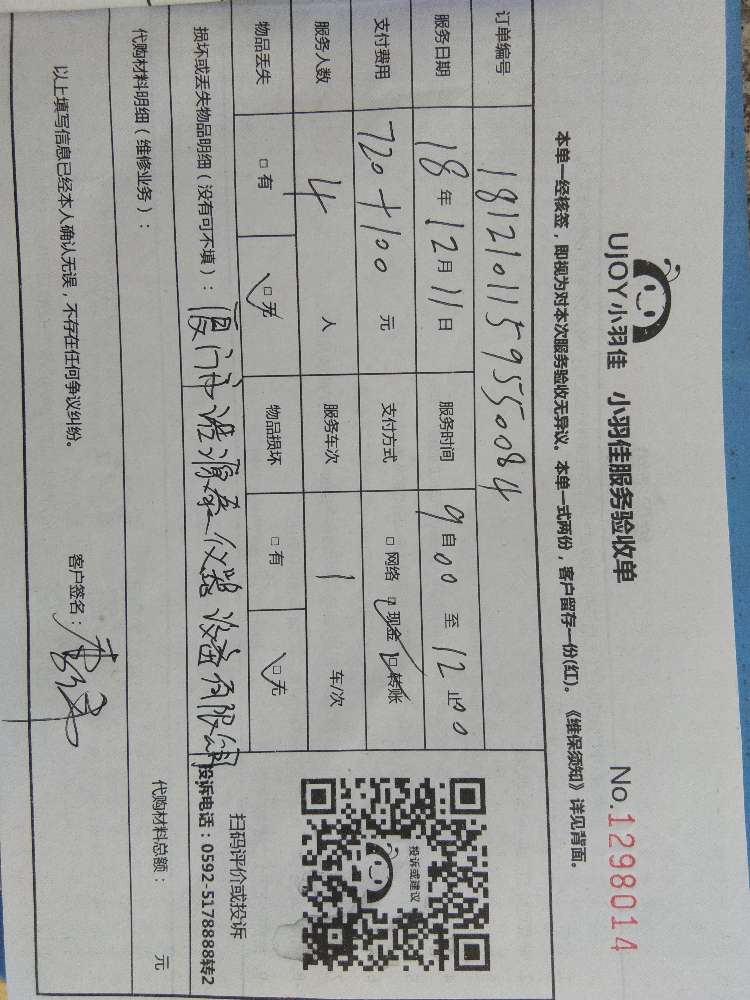 UjOY小羽佳 小羽佳服务验收单 No.1298014
本单一经核签，即视为对本次服务验收无异议。本单一式两份，客户留存一份(红)。《维保须知》详见背面。
订单编号 1812101159550084
服务日期 18年12月11日 服务时间 9自00至12止00
支付费用 720+100 元 支付方式 □网络 □现金 □转账
服务人数 4 人 服务车次 1 车/次
物品丢失 □有 □无 物品损坏 □有 □无
投诉或建议
扫码评价或投诉
投诉电话：0592-5178888转2
损坏或丢失物品明细（没有可不填）：厦门 仪器设备有限
代购材料明细（维修业务）： 代购材料总额： 元
以上填写信息已经本人确认无误，不存在任何争议纠纷。 客户签名：